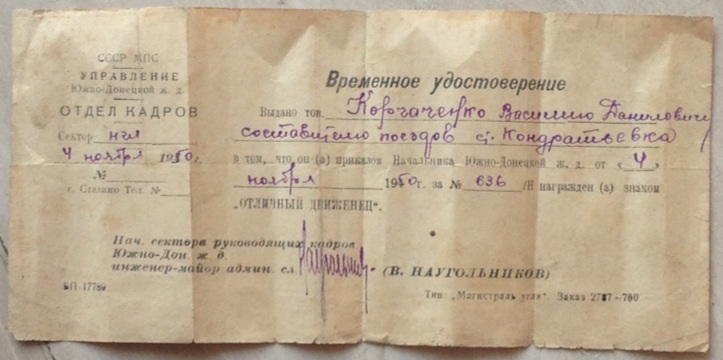 СССР МПС
УПРАВЛЕНИЕ
Южно-Донецкой ж. д.
ОТДЕЛ КАДРОВ
Сектор
4 ноября 1950г.
№
г. Сталино Тел. №
Временное удостоверение
Выдано тов. Корчаченко Василию Даниловичу
составителю поездов ст. Кондратьевка
в том, что он (а) приказом Начальника Южно-Донецкой ж. д. от „4"
ноября 1950г. за № 636/Н награжден (а) знаком
„ОТЛИЧНЫЙ ДВИЖЕНЕЦ".
Нач. сектора руководящих кадров
Южно-Дон. ж. д.
инженер-майор админ. сл. (В. НАУГОЛЬНИКОВ)
БП-17789
Тип. „Магистраль угля" Заказ 2787-700